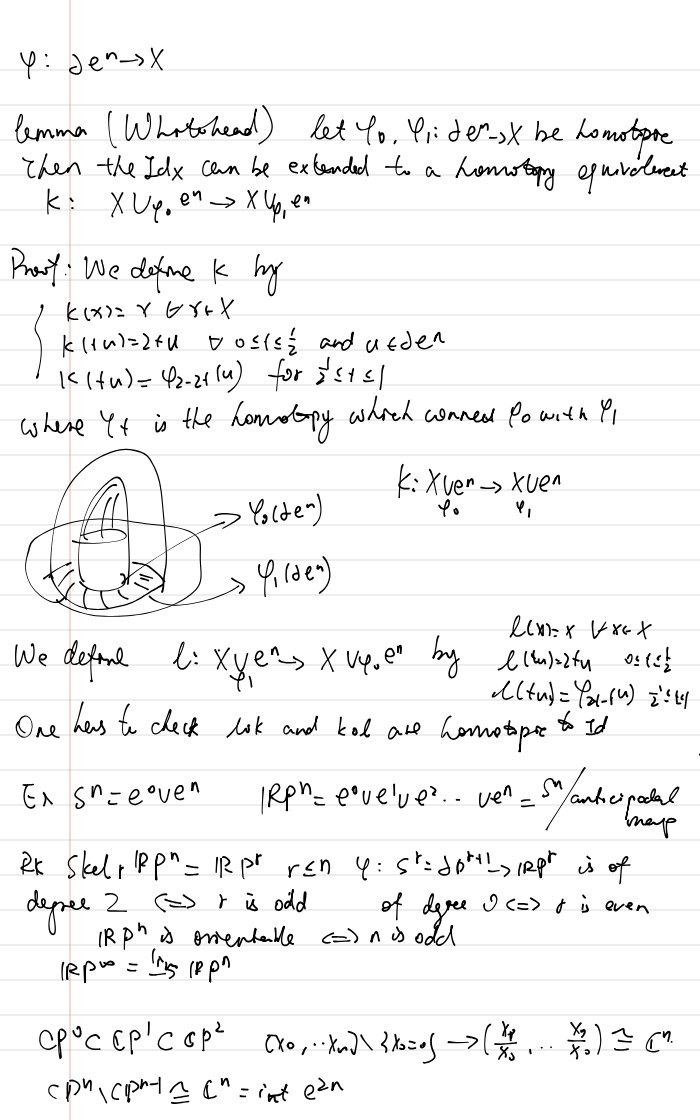 φ: ∂eⁿ → X
lemma (Whitehead) let φ₀, φ₁: ∂eⁿ → X be homotopic
Then the Id_X can be extended to a homotopy equivalent
k: X ∪_φ₀ eⁿ → X ∪_φ₁ eⁿ
Proof: We define k by
k(x) = x ∀ x ∈ X
k(tu) = 2tu ∀ 0 ≤ t ≤ 1/2 and u ∈ ∂eⁿ
k(tu) = φ_{2-2t}(u) for 1/2 ≤ t ≤ 1
where φ_t is the homotopy which connect φ₀ with φ₁
k: X ∪_φ₀ eⁿ → X ∪_φ₁ eⁿ
φ₀(∂eⁿ)
φ₁(∂eⁿ)
We define l: X ∪_φ₁ eⁿ → X ∪_φ₀ eⁿ by
l(x) = x ∀ x ∈ X
l(tu) = 2tu 0 ≤ t ≤ 1/2
l(tu) = φ_{2t-1}(u) 1/2 ≤ t ≤ 1
One has to check l∘k and k∘l are homotopic to Id
Ex Sⁿ = e⁰ ∪ eⁿ RPⁿ = e⁰ ∪ e¹ ∪ e² .. ∪ eⁿ = Sⁿ/antipodal
map
RK Skel_r RPⁿ = RPʳ r ≤ n φ: Sʳ = ∂D^{r+1} → RPʳ is of
degree 2 ⟺ r is odd of degree 0 ⟺ r is even
RPⁿ is orientable ⟺ n is odd
RP^∞ = lim→ RPⁿ
CP⁰ ⊂ CP¹ ⊂ CP² [x₀, ..xₙ] \ {x₀=0} → (x₁/x₀, ... xₙ/x₀) ≅ Cⁿ
CPⁿ \ CPⁿ⁻¹ ≅ Cⁿ = int e²ⁿ